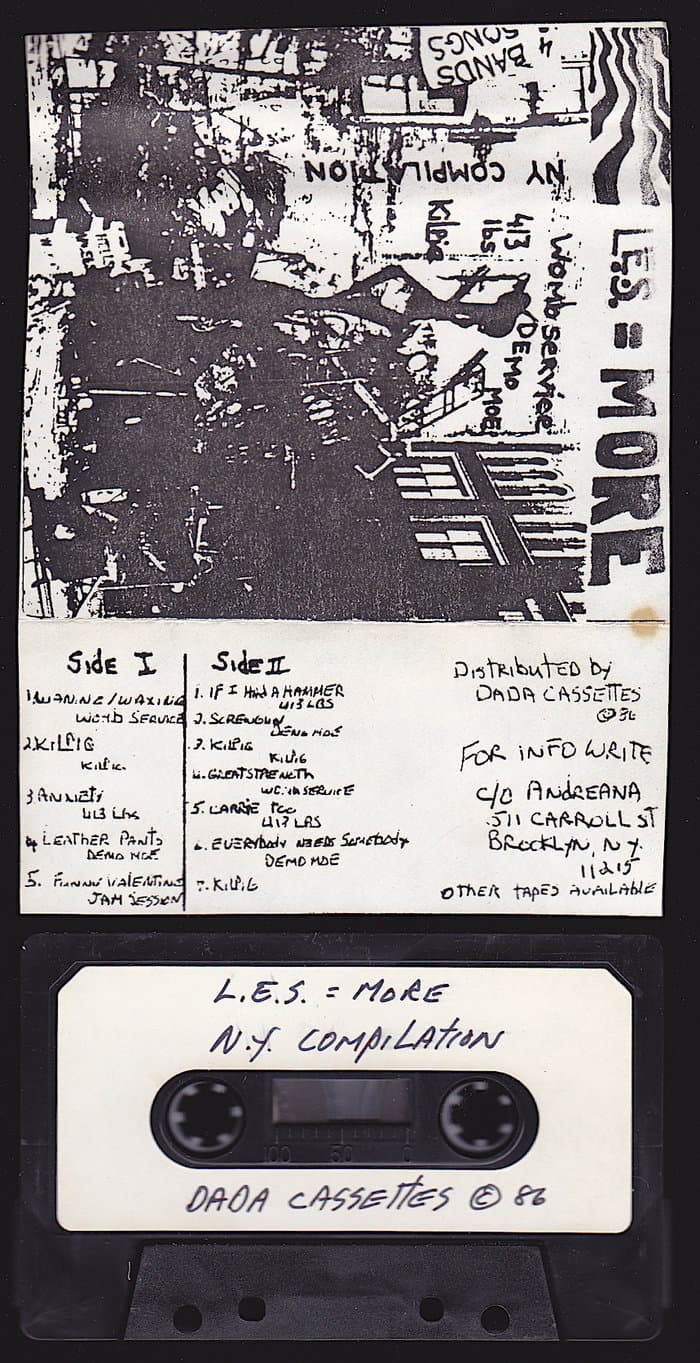 4
BANDS
SONGS
NY COMPILATION
L.E.S. = MORE
Womb Service
413
lbs
Kilpig
DEMO MOE
Side I
1. WANING/WAXING
WOMB SERVICE
2. KILPIG
KILPIG
3 ANXIETY
413 Lbs
4 LEATHER PANTS
DEMO MOE
5. FUNNY VALENTINE
JAM SESSION
Side II
1. IF I HAD A HAMMER
413 LBS
2. SCREWGUN
DEMO MOE
3. KILPIG
KILPIG
4. GREAT STRENGTH
WOMB SERVICE
5. CARRIE TOO
413 LBS
6. EVERYBODY NEEDS SOMEBODY
DEMO MOE
7. KILPIG
DISTRIBUTED BY
DADA CASSETTES
© 86
FOR INFO WRITE
C/O ANDREANA
511 CARROLL ST
BROOKLYN, N.Y.
11215
OTHER TAPES AVAILABLE
L.E.S. = MORE
N.Y. COMPILATION
100 50 0
DADA CASSETTES © 86